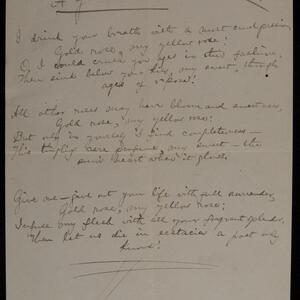 A
I drink your breath with a most
Gold rose, my yellow rose!
O I could crush you
Then sink below you my sweet, through
ages of
All other roses may have bloom and sweetness,
Gold rose, my yellow rose:
But only in yourself I find completeness —
This perfume, my sweet — the
sun's heart when it glows.
Give me — just out your life with full surrender,
Gold rose, my yellow rose:
Infuse my flesh with all your fragrant splendor,
Then let us die in ecstacies a poet only
knows!